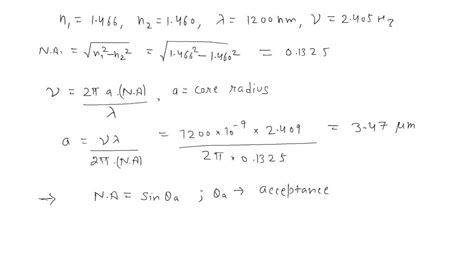 n₁ = 1.466, n₂ = 1.460, λ = 1200 nm, ν = 2.405 Hz
N.A. = √(n₁²-n₂²) = √(1.466²-1.460²) = 0.1325
ν = 2π a.(N.A) / λ , a = core radius
a = νλ / 2π.(N.A) = 1200×10⁻⁹ × 2.409 / 2π × 0.1325 = 3.47 μm
→ N.A = sinθa ; θa → acceptance